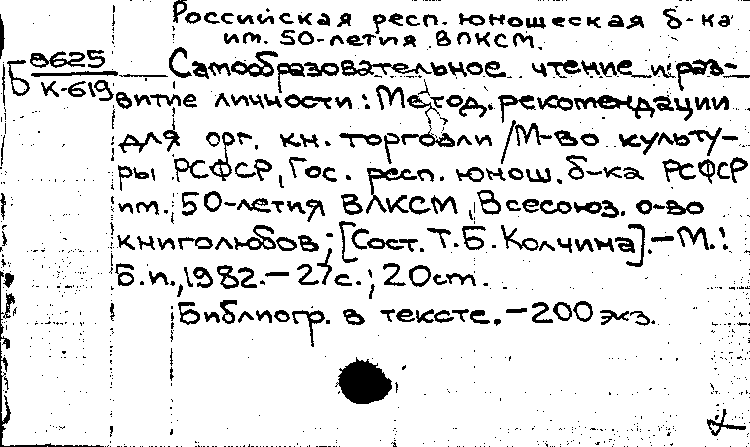 Российская респ. юношеская б-ка
им. 50-летия ВЛКСМ.
Б 8625
К-619
Самообразовательное чтение и раз-
витие личности: Метод. рекомендации
для орг. кн. торговли /М-во культу-
ры РСФСР, Гос. респ. юнош. б-ка РСФСР
им. 50-летия ВЛКСМ, Всесоюз. о-во
книголюбов; [Сост. Т.Б. Колчина].-М.:
Б.и., 1982.- 27с.; 20см.
Библиогр. в тексте. - 200 экз.